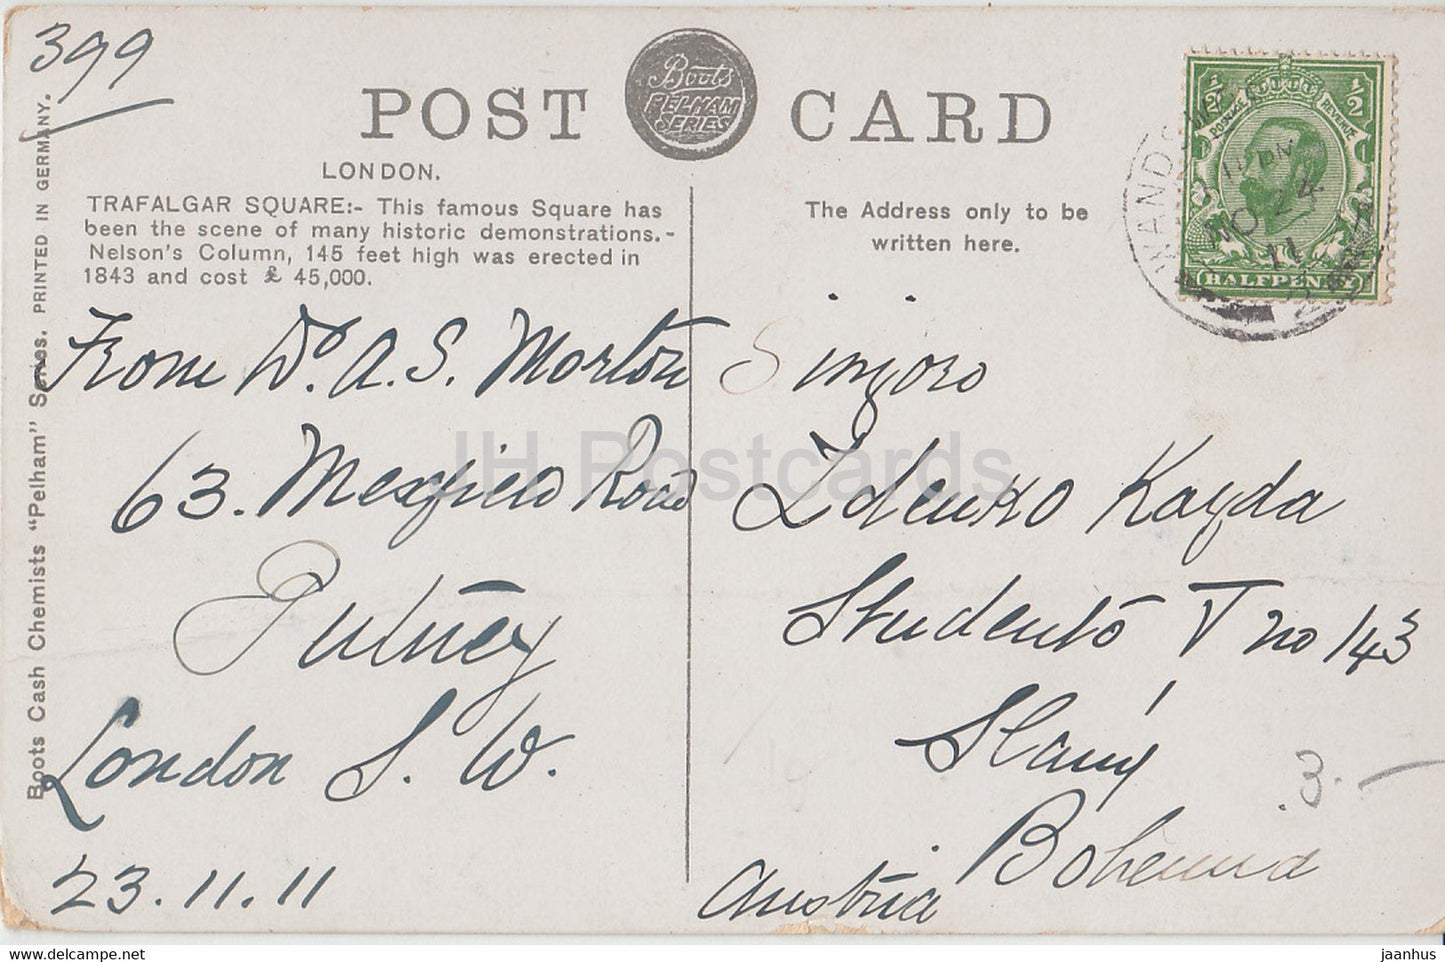 399
POST CARD
Boots
PELHAM
SERIES
LONDON.
TRAFALGAR SQUARE:- This famous Square has
been the scene of many historic demonstrations.-
Nelson's Column, 145 feet high was erected in
1843 and cost £ 45,000.
The Address only to be
written here.
½ ½
POSTAGE REVENUE
HALFPENNY
WANDS
11 PM
NO 24
11
Boots Cash Chemists "Pelham" Series. PRINTED IN GERMANY.
From Dr. A. S. Morton
63. Mexfield Road
Putney
London S. W.
23.11.11
Sinjoro
Zdenko Kayda
Studento V no 143
Slaný
Bohemia
Austria
3.-
JH Postcards
jaanhus